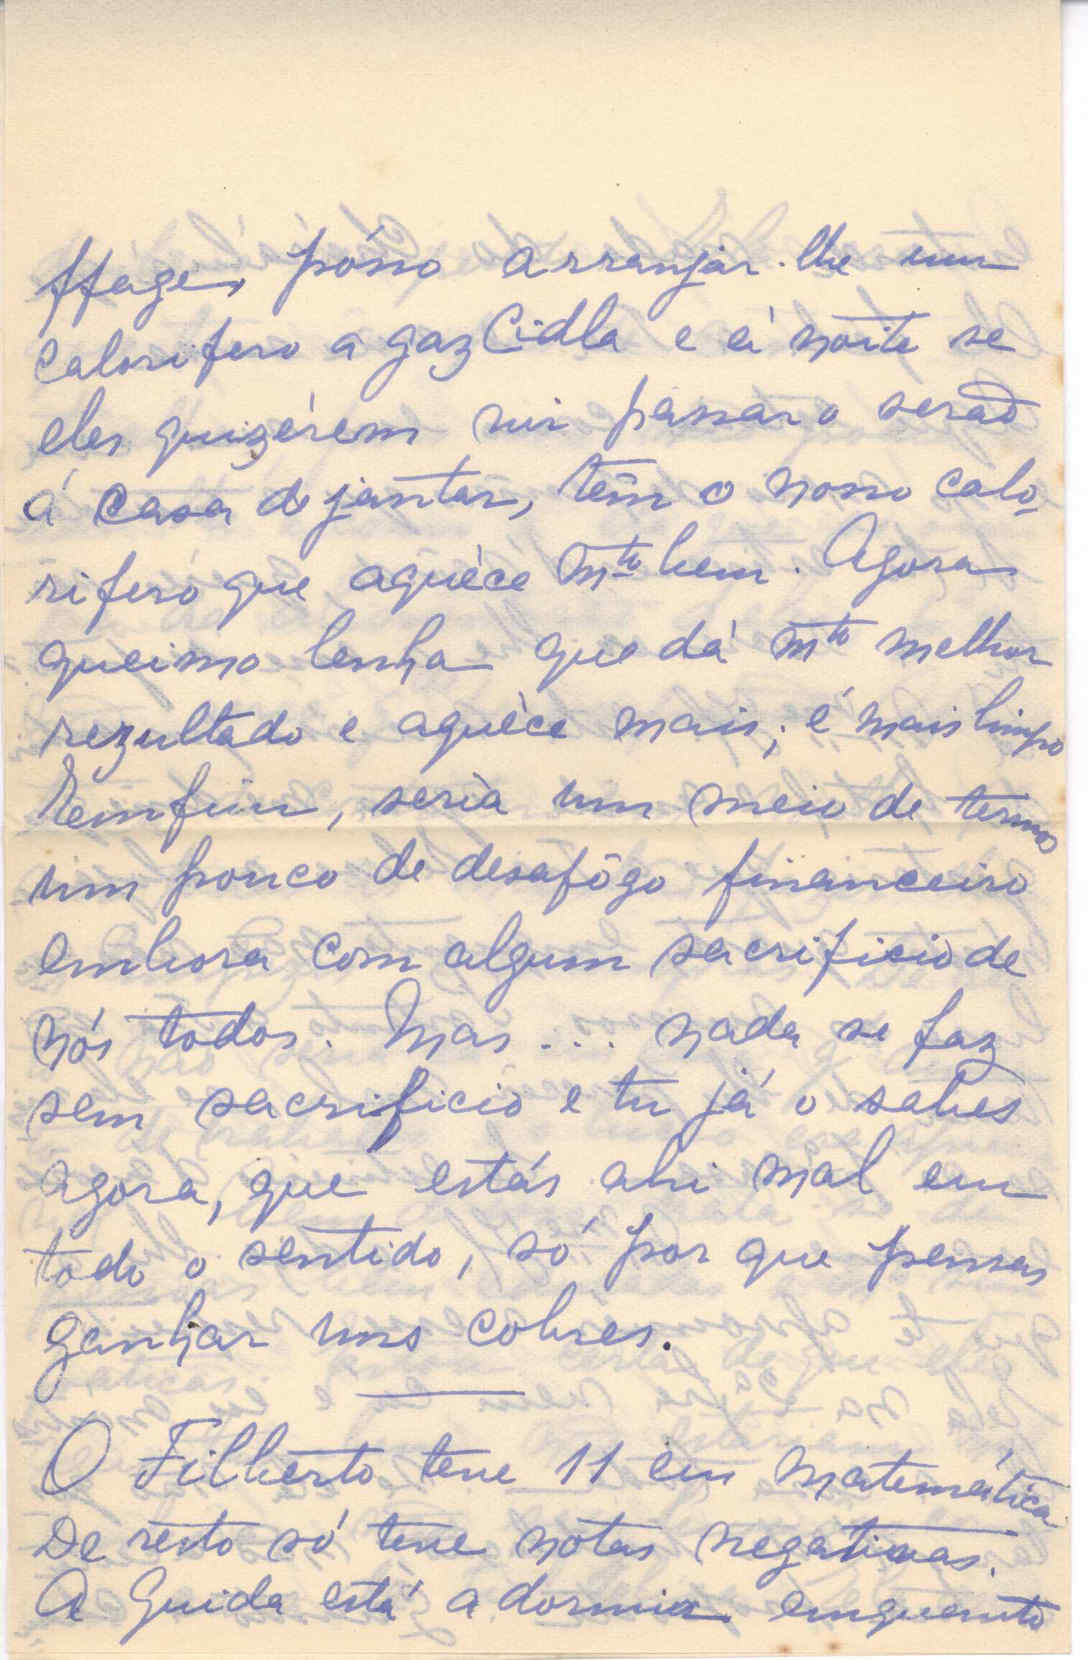 ffage, pósso arranjar-lhe um
calorifero a gaz Cidla e á noite se
eles quizérem vir passar o serão
á casa de jantar, têm o nosso calo-
rifero que aquéce mto bem. Agora
queimo lenha que dá mto melhor
rezultado e aquéce mais; é mais limpo
Emfim, seria um meio de termos
um pouco de desafôgo financeiro
embora com algum sacrificio de
nós todos. Mas ... nada se faz
sem sacrificio e tu já o sabes
agora, que estás ahi mal em
todo o sentido, só por que pensas
ganhar uns cobres.
O Filberto teve 11 em matemática.
De resto só teve notas negativas.
A Guida está a dormir emquanto